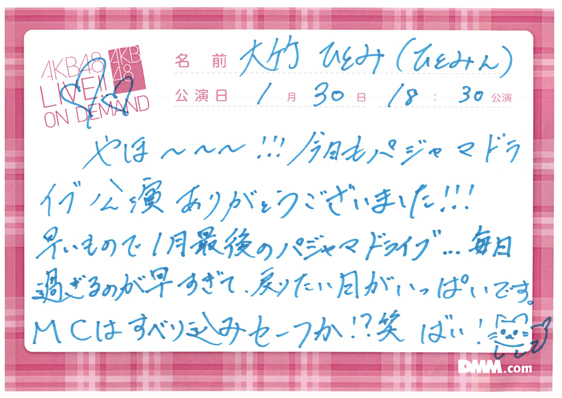 AKB48
LIVE!!
ON DEMAND
AKB
48
名前 大竹 ひとみ (ひとみん)
公演日 1月30日 18:30公演
やほ〜〜〜!!!今日もパジャマドラ
イブ公演ありがとうございました!!!
早いもので1月最後のパジャマドライブ…毎日
過ぎるのが早すぎて、戻りたい日がいっぱいです。
MCはすべり込みセーフか!?笑 ばい!
DMM.com